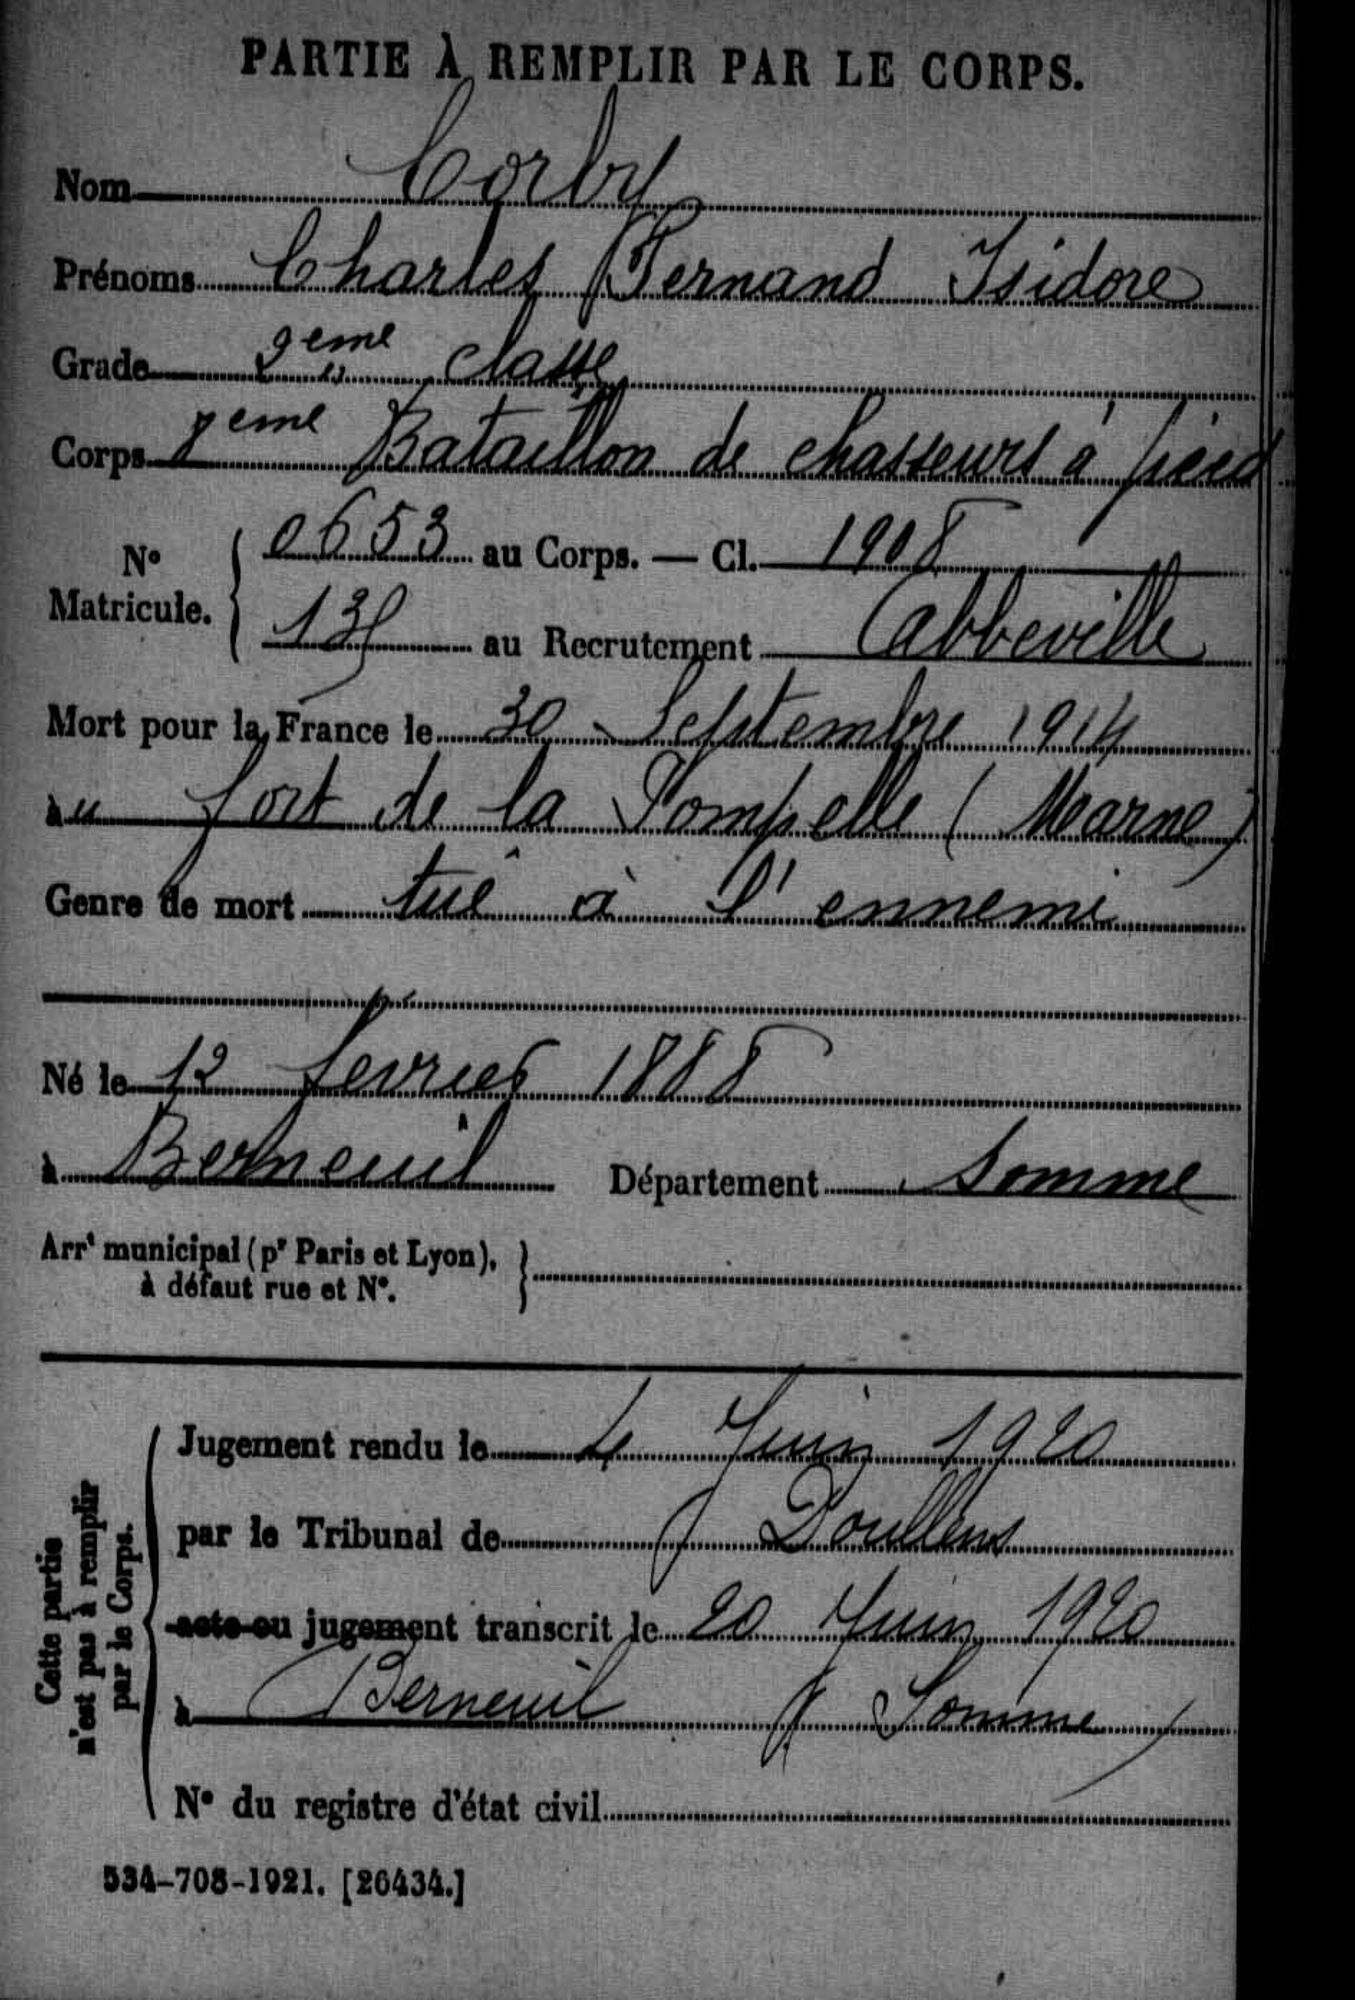 PARTIE À REMPLIR PAR LE CORPS.
Nom Corby
Prénoms Charles Fernand Isidore
Grade 2eme classe
Corps 8eme Bataillon de chasseurs à pied
N° Matricule. 0653 au Corps. — Cl. 1908
135 au Recrutement Abbeville
Mort pour la France le 30 Septembre 1914
au fort de la Pompelle (Marne)
Genre de mort tué à l'ennemi
Né le 12 février 1888
à Berneuil Département Somme
Arrt municipal (pr Paris et Lyon),
à défaut rue et N°.
Cette partie
n'est pas à remplir
par le Corps.
Jugement rendu le 4 Juin 1920
par le Tribunal de Doullens
acte ou jugement transcrit le 20 Juin 1920
à Berneuil (Somme)
N° du registre d'état civil
534-708-1921. [26434.]